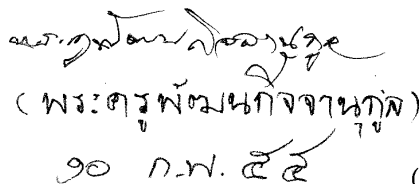 พระครูพัฒนกิจจานุกูล
(พระครูพัฒนกิจจานุกูล)
๑๐ ก.พ. ๕๕